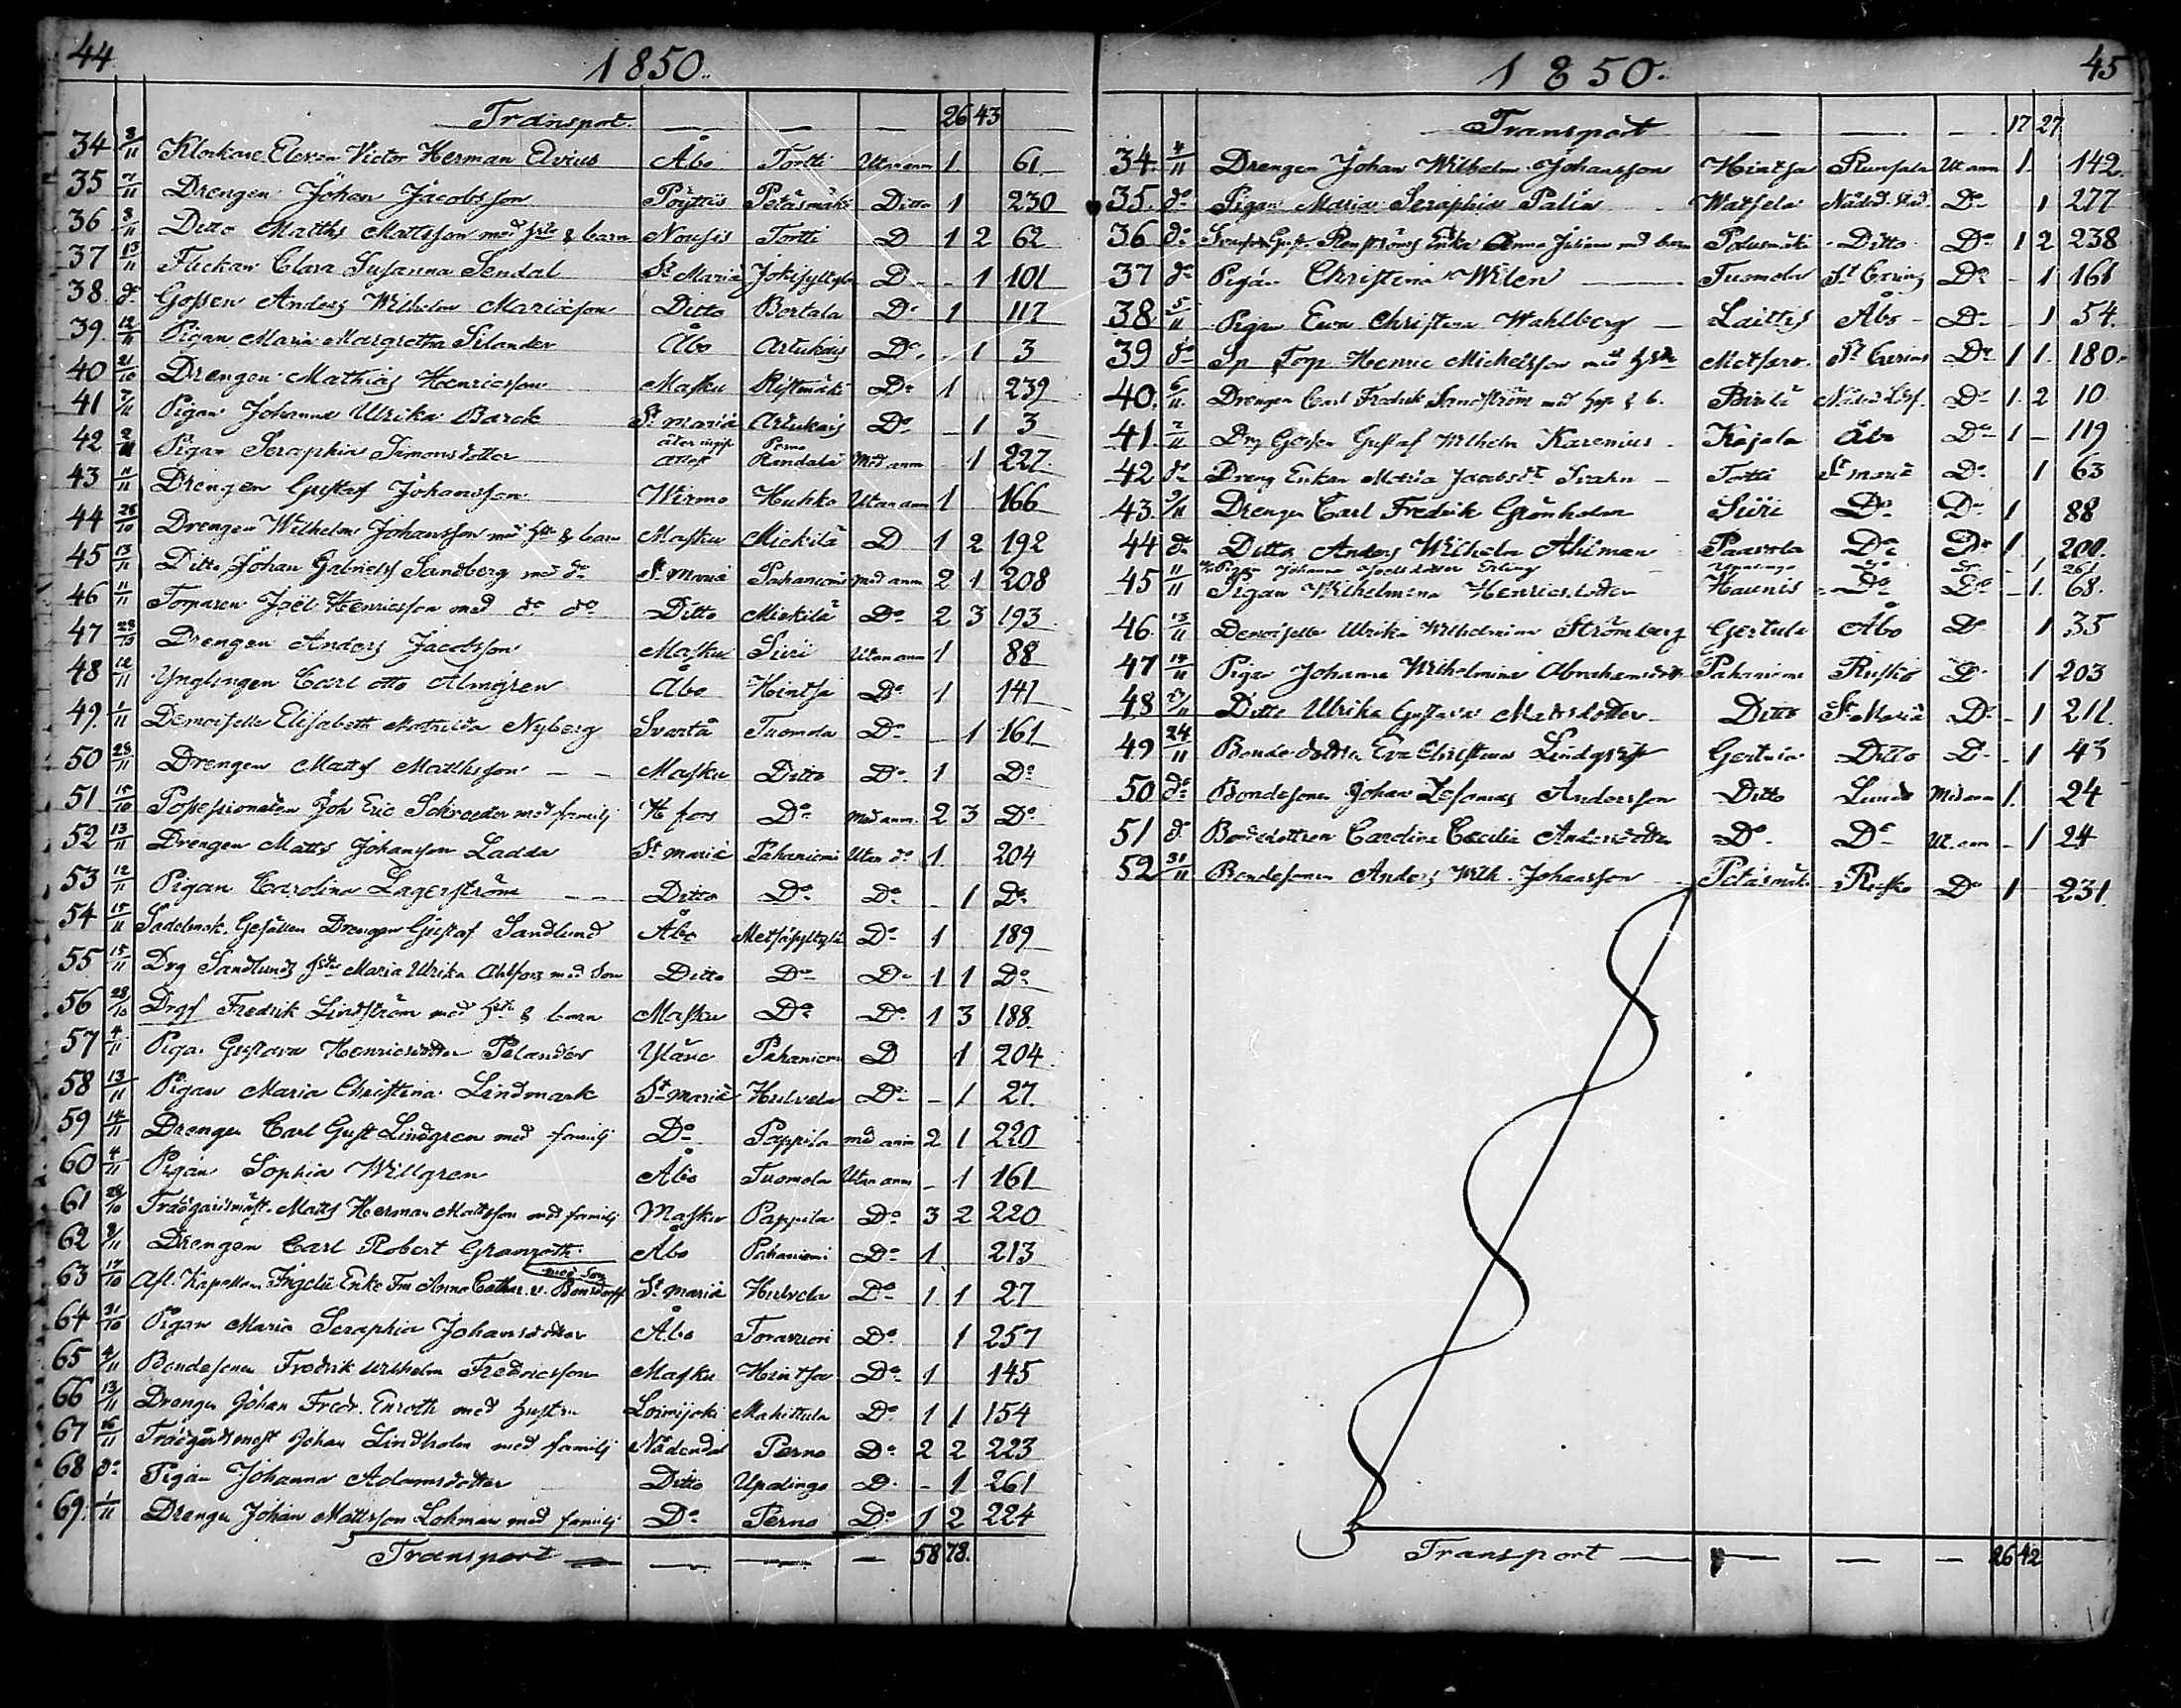 44
1850.
Transport. — — — 26 43
34 3/11 Klockare Eleven Victor Herman Elvius Åbo Tortti Utan anm 1 61
35 7/11 Drengen Johan Jacobsson Pöyttis Petäsmäki Ditto 1 230
36 8/11 Ditto Matths Mattsson med hst & barn Nousis Tortti D 1 2 62
37 13/11 Flickan Clara Susanna Sendal St Mariæ Jokisyltylä D - 1 101
38 do Gossen Anders Wilhelm Mariæson Ditto Bertala Do 1 117
39 12/11 Pigan Maria Margretha Silander Åbo Artukais Do - 1 3
40 21/10 Drengen Mathias Henricsson Masku Do 1 239
41 7/11 Pigan Johanna Ulrika Barck St Mariæ Artukais Do - 1 3
42 2/11 Pigan Seraphia Simonsdotter Perno Med anm 1 227
43 11/11 Drengen Gustaf Johansson Wirmo Huhko Utan anm 1 166
44 28/10 Drengen Wilhelm Johansson med hst & barn Masku Mickilä D 1 2 192
45 13/11 Ditto Johan Gabrielss Sandberg med do St Mariæ Pahaniemi Med anm 2 1 208
46 11/11 Torparen Joël Henricsson med do do Ditto Mickilä Do 2 3 193
47 28/10 Drengen Anders Jacobsson Masku Siiri Utan anm 1 88
48 12/11 Ynglingen Carl Otto Almgren Åbo Hintsa Do 1 141
49 1/11 Demoiselle Elisabeth Mathilda Nyberg Svartå Tuomola Do - 1 161
50 28/11 Drengen Matts Matthsson — — Masku Ditto Do 1 Do
51 15/10 Possessionaten Joh Eric Schroeder med familj H fors Do Med anm. 2 3 Do
52 13/11 Drengen Matts Johansson Ladda St Mariæ Pahaniemi Utan do 1 204
53 12/11 Pigan Carolina Lagerström — — Ditto Do Do - 1 Do
54 15/11 Sadelmak. Gesällen Drengen Gustaf Sandlund Åbo Metsäsyltylä Do 1 189
55 15/11 Drg Sandlunds hst Maria Ulrika Ahlfors med Son Ditto Do Do 1 1 Do
56 28/10 Drgf Fredrik Lindström med hst & barn Masku Do Do 1 3 188
57 4/11 Piga Gustava Henricsdotter Pelander Yläne Pahaniemi D 1 204
58 13/11 Pigan Maria Christina Lindmark St Mariæ Hulvela Do - 1 27
59 14/11 Drengen Carl Gust Lindgren med familj Do Pappila med anm 2 1 220
60 4/11 Pigan Sophia Willgren Åbo Tuomola Utan anm - 1 161
61 28/10 Trädgårdsmäst. Matts Herman Mattsson med familj Masku Pappila Do 3 2 220
62 8/11 Drengen Carl Robert Granroth Åbo Pahaniemi Do 1 213
63 17/10 Afl. Kapellan Enke Fru Anna Cathar. v. Bonsdorff med Son St Mariæ Hulvela Do 1 1 27
64 31/10 Pigan Maria Seraphia Johansdotter Åbo Toravuori Do 1 257
65 4/11 Bondesonen Fredrik Wilhelm Fredricsson Masku Hintsa Do 1 145
66 13/11 Drengen Johan Fredr. Enroth med hustru Loimijoki Mahittula Do 1 1 154
67 16/11 Trädgårdsmäst Johan Lindholm med familj Nådendal Perno Do 2 2 223
68 do Pigan Johanna Adamsdotter Ditto Upalinga D - 1 261
69 1/11 Drengen Johan Mattsson Lohman med familj Do Perno Do 1 2 224
Transport — — — — 58 78
1850.
45
Transport — — — 17 27
34 4/11 Drengen Johan Wilhelm Johansson Hintsa Runsala Ut anm 1 142
35 do Pigan Maria Seraphia Palin Watsela Nådd. Do 1 277
36 do Enka Anna Juliana med barn Petäsmäki Ditto Do 1 2 238
37 do Pigan Christina Wilen — Tuomola Do - 1 161
38 5/11 Pigan Eva Christina Wahlberg — Laittis Åbo Do - 1 54
39 do Sp Torp Henric Michelsson med hst Do 1 1 180
40 6/11 Drengen Carl Fredrik Sandström med hst & b. Do 1 2 10
41 7/11 Drg Gossen Gustaf Wilhelm Karenius Kajala Åbo Do 1 - 119
42 do Dreng Enkan Maria Jacobsdr Svahn — Tortti St Mariæ Do 1 63
43 9/11 Drengen Carl Fredrik Grönholm Siiri Do Do 1 88
44 do Ditto Anders Wilhelm Ahlman Paavola Do Do 1 200
Pigan Johanna Joelsdotter Erling Upalinga Do Do - 1 261
45 11/11 Pigan Wilhelmina Henricsdotter Haunis Do Do - 1 68
46 13/11 Demoiselle Ulrika Wilhelmina Strömberg Gertula Åbo Do 1 35
47 14/11 Pigan Johanna Wilhelmina Abrahamsdotter Pahaniemi Rusko D 1 203
48 Ditto Ulrika Gustava Mattsdotter Ditto St Mariæ Do - 1 211
49 24/11 Bonde dottren Eva Christina Lindqvist Gertula Ditto D - 1 43
50 do Bondesonen Johan Zefanias Andersson Ditto Lundo Med anm 1 24
51 do Bondedottren Carolina Cecilia Andersdotter Do Do Ut. anm - 1 24
52 31/11 Bondesonen Anders Wilh. Johansson Petäsmäki Rusko Do 1 231
Transport — — — — 26 42